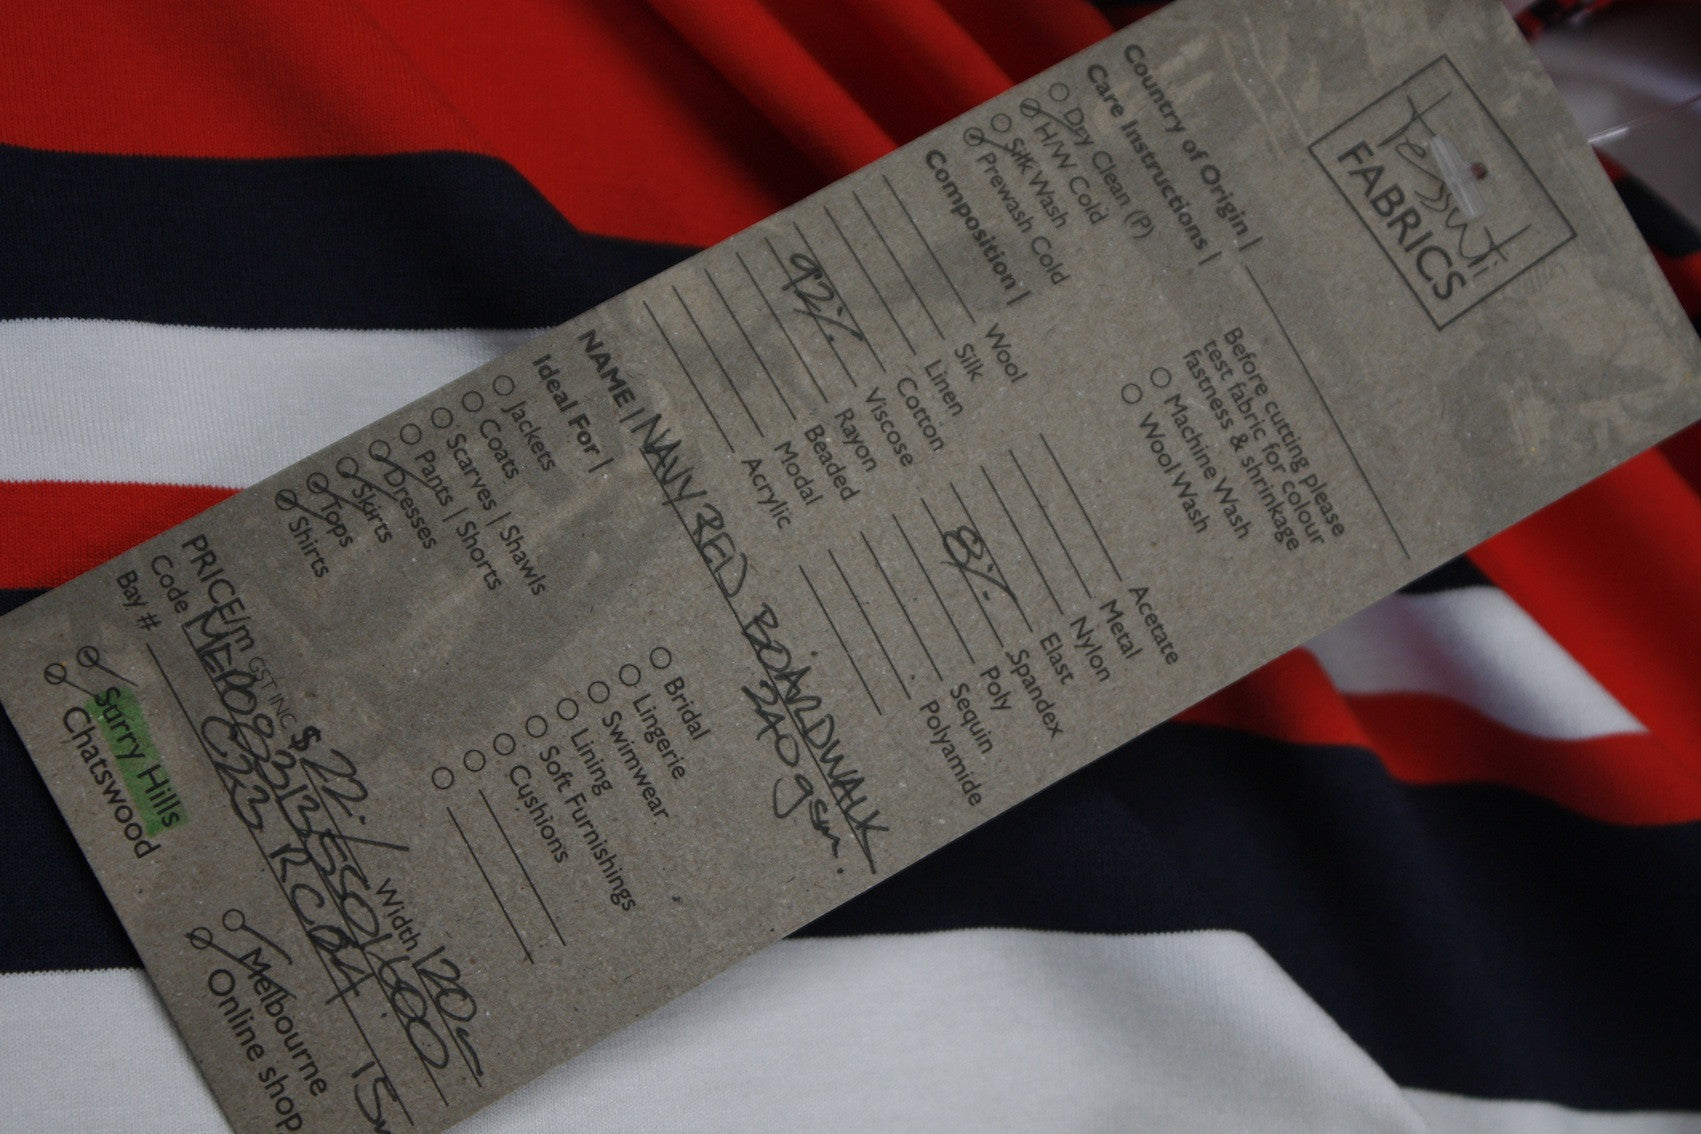 Tessuti
FABRICS
Before cutting please
test fabric for colour
fastness & shrinkage
Country of Origin |
Care Instructions |
Dry Clean (P)
H/W Cold
Silk Wash
Prewash Cold
Machine Wash
Wool Wash
Composition |
Wool
Silk
Linen
Cotton
92% Viscose
Rayon
Beaded
Modal
Acrylic
Acetate
Metal
Nylon
Elast
8% Spandex
Poly
Sequin
Polyamide
NAME | NAVY RED BOARDWALK
240gsm.
Ideal For |
Jackets
Coats
Scarves | Shawls
Pants | Shorts
Dresses
Skirts
Tops
Shirts
Bridal
Lingerie
Swimwear
Lining
Soft Furnishings
Cushions
PRICE/m GST INC $22. Width 120
Code
Bay #
Surry Hills
Chatswood
Melbourne
Online shop